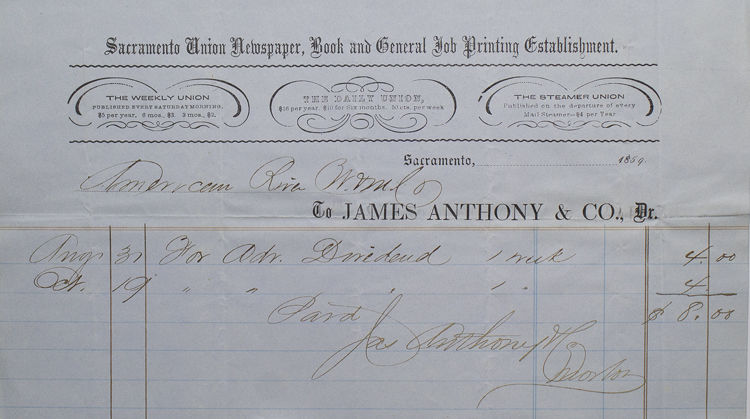 Sacramento Union Newspaper, Book and General Job Printing Establishment.
THE WEEKLY UNION
PUBLISHED EVERY SATURDAY MORNING,
$5 per year, 6 mos., $3. 3 mos., $2.
THE DAILY UNION,
$16 per year. $10 for Six months. 50 cts. per week
THE STEAMER UNION
Published on the departure of every
Mail Steamer—$4 per Year
Sacramento, 1859.
American River W. & M. Co
To JAMES ANTHONY & CO., Dr.
Aug 31 For Adv. Dividend 1 week 4.00
Oct. 19 " " " " " 4.
$ 8.00
Paid
Jas Anthony & Co